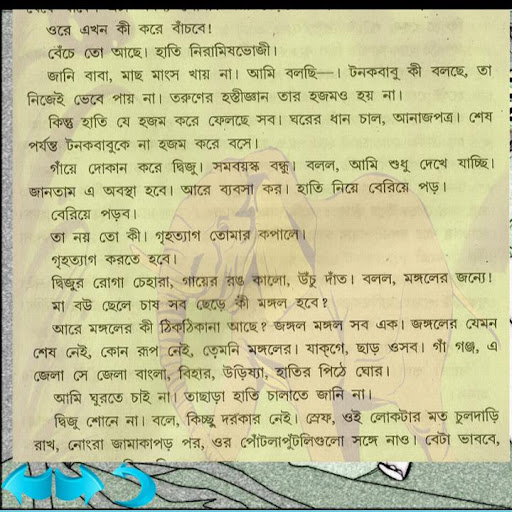 ওরে এখন কী করে বাঁচবে!
বেঁচে তো আছে। হাতি নিরামিষভোজী।
জানি বাবা, মাছ মাংস খায় না। আমি বলছি—। টনকবাবু কী বলছে, তা
নিজেই ভেবে পায় না। তরুণের হস্তীজ্ঞান তার হজমও হয় না।
কিন্তু হাতি যে হজম করে ফেলছে সব। ঘরের ধান চাল, আনাজপত্র। শেষ
পর্যন্ত টনকবাবুকে না হজম করে বসে।
গাঁয়ে দোকান করে দ্বিজু। সমবয়স্ক বন্ধু। বলল, আমি শুধু দেখে যাচ্ছি।
জানতাম এ অবস্থা হবে। আরে ব্যবসা কর। হাতি নিয়ে বেরিয়ে পড়।
বেরিয়ে পড়ব।
তা নয় তো কী। গৃহত্যাগ তোমার কপালে।
গৃহত্যাগ করতে হবে।
দ্বিজুর রোগা চেহারা, গায়ের রঙ কালো, উঁচু দাঁত। বলল, মঙ্গলের জন্যে!
মা বউ ছেলে চাষ সব ছেড়ে কী মঙ্গল হবে?
আরে মঙ্গলের কী ঠিকঠিকানা আছে? জঙ্গল মঙ্গল সব এক। জঙ্গলের যেমন
শেষ নেই, কোন রূপ নেই, তেমনি মঙ্গলের। যাক্‌গে, ছাড় ওসব। গাঁ গঞ্জ, এ
জেলা সে জেলা বাংলা, বিহার, উড়িষ্যা, হাতির পিঠে ঘোর।
আমি ঘুরতে চাই না। তাছাড়া হাতি চালাতে জানি না।
দ্বিজু শোনে না। বলে, কিচ্ছু দরকার নেই। স্রেফ, ওই লোকটার মত চুলদাড়ি
রাখ, নোংরা জামাকাপড় পর, ওর পোঁটলাপুঁটলিগুলো সঙ্গে নাও। বেটা ভাববে,